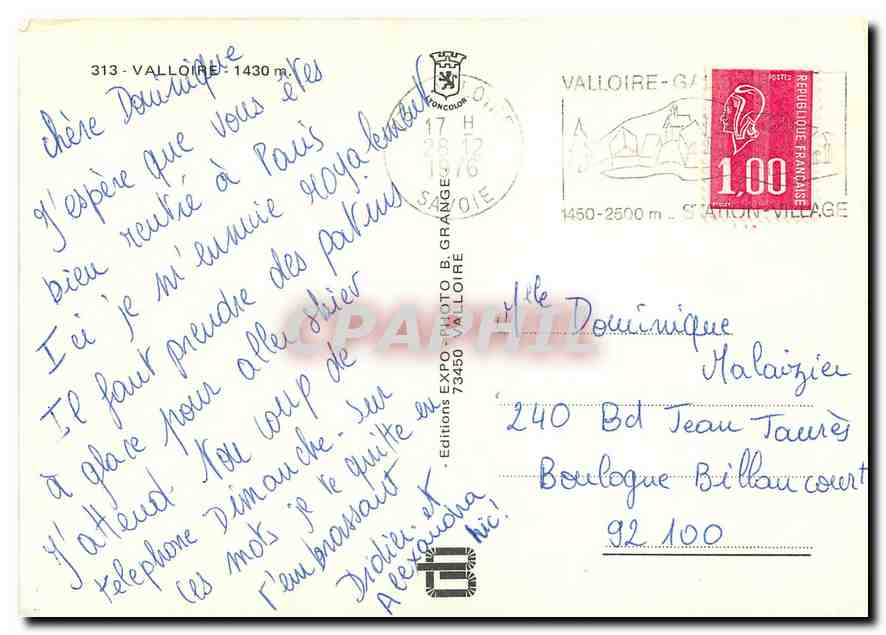 313 - VALLOIRE - 1430 m.
chère Dominique
J'espère que vous êtes
bien rentré à Paris
Ici je m'ennuie royalement
Il faut prendre des patins
à glace pour aller skier
J'attend ton coup de
telephone Dimanche. Sur
ces mots je te quitte en
t'embrassant
Didier et
Alexandra
hic!
LYONCOLOR
17 H
28-12
1976
SAVOIE
VALLOIRE-GA
1450-2500 m _ STATION-VILLAGE
POSTES
REPUBLIQUE FRANÇAISE
1,00
Editions EXPO-PHOTO B. GRANGE
73450 VALLOIRE
CPAPHIL
Mlle Dominique
Malaizier
240 Bd Jean Jaurès
Boulogne Billancourt
92 100